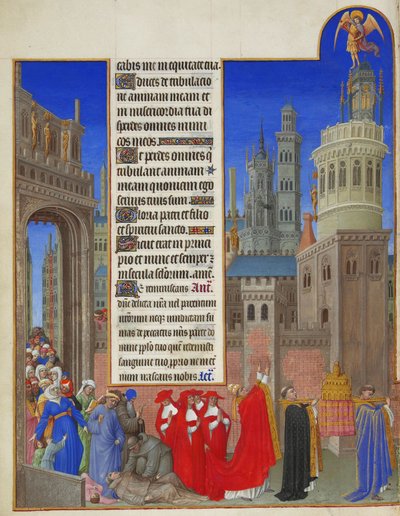 cabis me in equitate tua.
Educes de tribulacio
ne animam meam et
in misericordia tua di
sperdes omnes inimi
cos meos.
Et perdes omnes q
tribulant animam
meam quoniam ego
servus tuus sum.
Gloria patri et filio
et spiritui sancto.
Sicut erat in princi
pio et nunc et semper ⁊
in secula sclorum. amē.
Ne reminiscaris Ant̄.
dn̄e delicta nr̄a vel parentum
nr̄orum neqꝫ vindictam su
mas de peccatis nr̄is parce do
mine pp̄lo tuo quē redemisti
sanguine tuo pp̄rio ne in et
ernum irascaris nobis